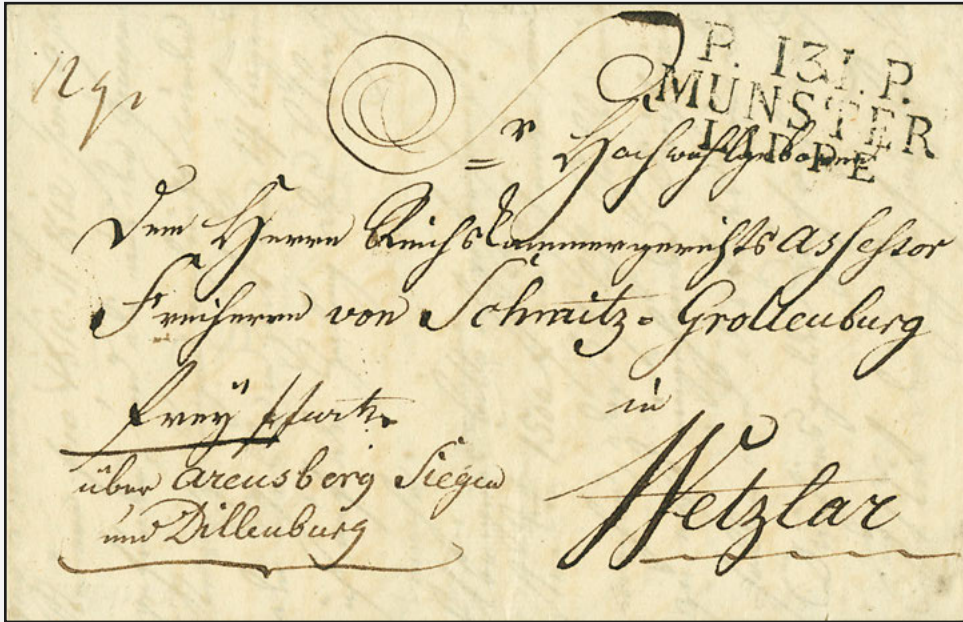 P. 131. P.
MUNSTER
LIPPE
Sr Hochwohlgeboren
Dem Herrn Reichskammergerichts Assessor
Freiherrn von Schmitz=Grollenburg
in
Wetzlar
frey
über Arensberg Siegen
und Dillenburg